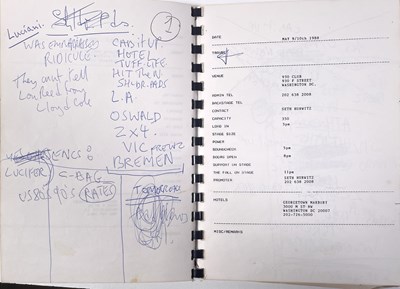 Luciani:
①
WAS
RIDICULE.
They can't tell
Lou Reed from
Lloyd Cole
CAB IT UP
HOTEL
TUFF LIFE
HIT THE N
L.A
OSWALD
2x4.
VIC
BREMEN
ENCS:
LUCIFER
C-BAG
US 80s 90's RATES
Tomorrow
DATE MAY 9/10th 1988
VENUE 930 CLUB
930 F STREET
WASHINGTON DC.
ADMIN TEL 202 638 2008
BACKSTAGE TEL
CONTACT SETH HURWITZ
CAPACITY 350
LOAD IN 3pm
STAGE SIZE
POWER
SOUNDCHECK 5pm
DOORS OPEN 8pm
SUPPORT ON STAGE
THE FALL ON STAGE 11pm
PROMOTER SETH HURWITZ
202 638 2008
HOTELS GEORGETOWN MARBURY
3000 M ST NW
WASHINGTON DC 20007
202-726-5000
MISC/REMARKS